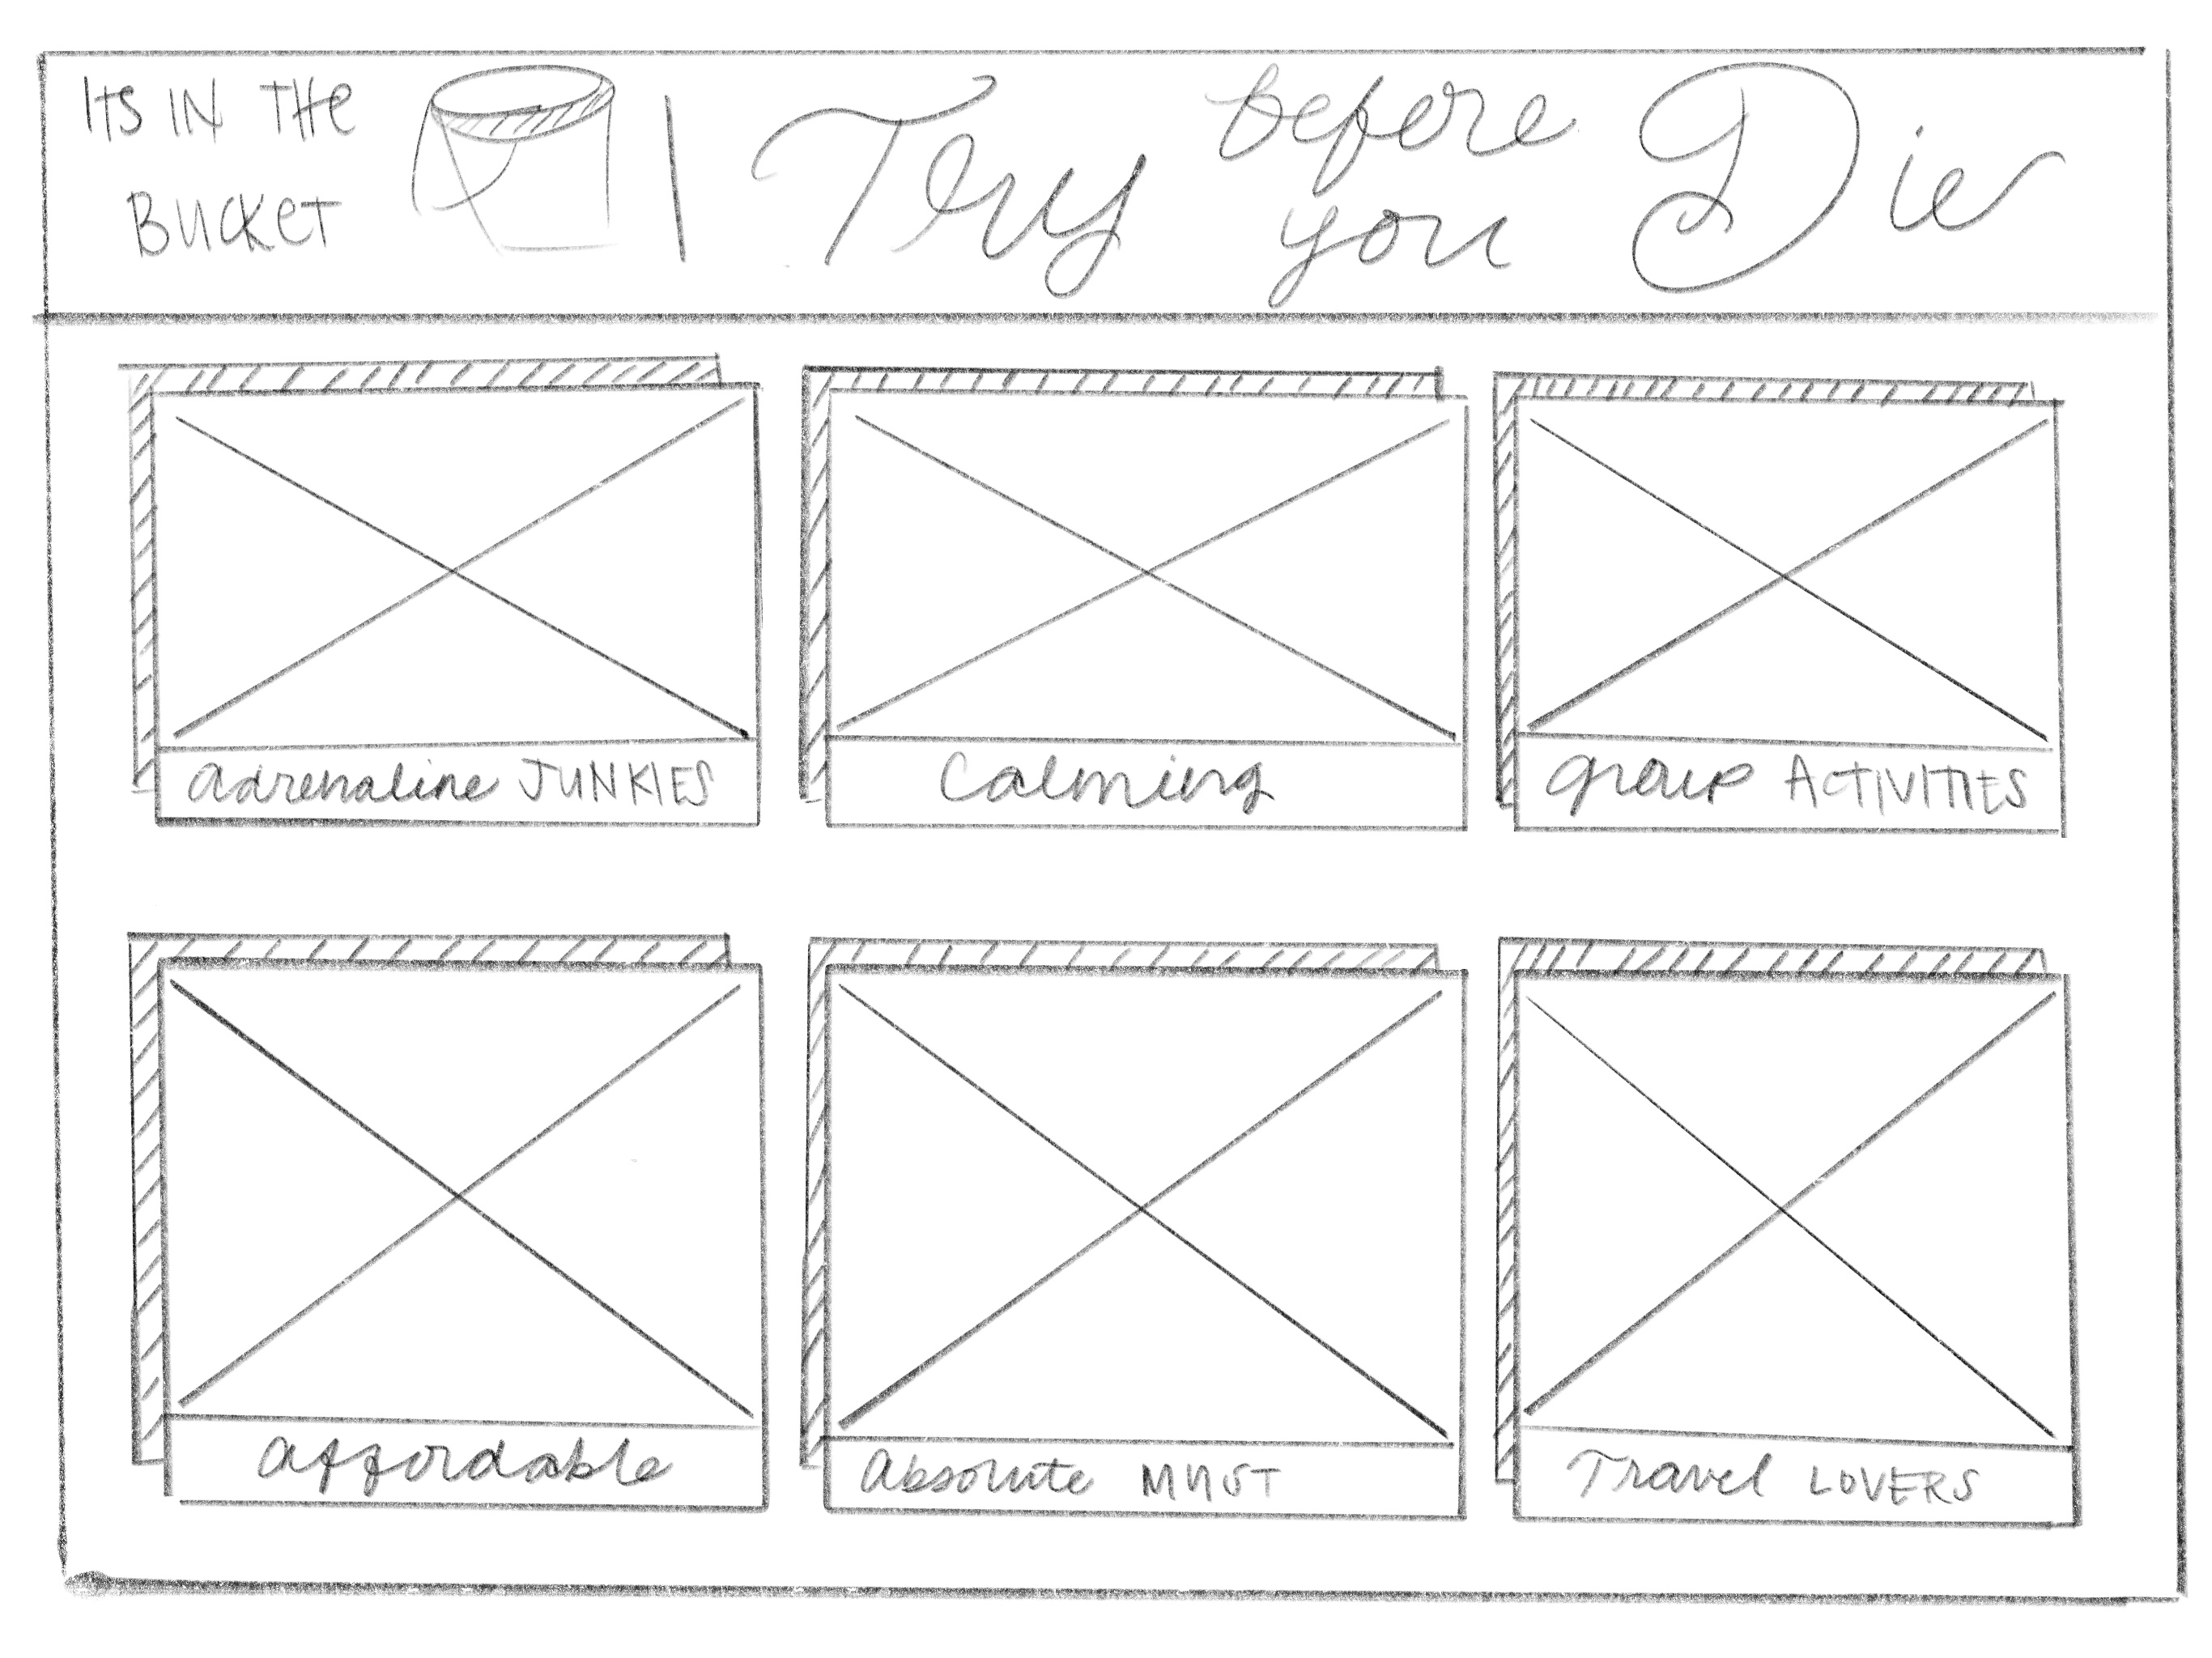 ITS IN THe
BUCKeT
Try before you Die
adrenaline JUNKIES
Calming
group ACTIVITIES
affordable
absolute MUST
Travel LOVERS